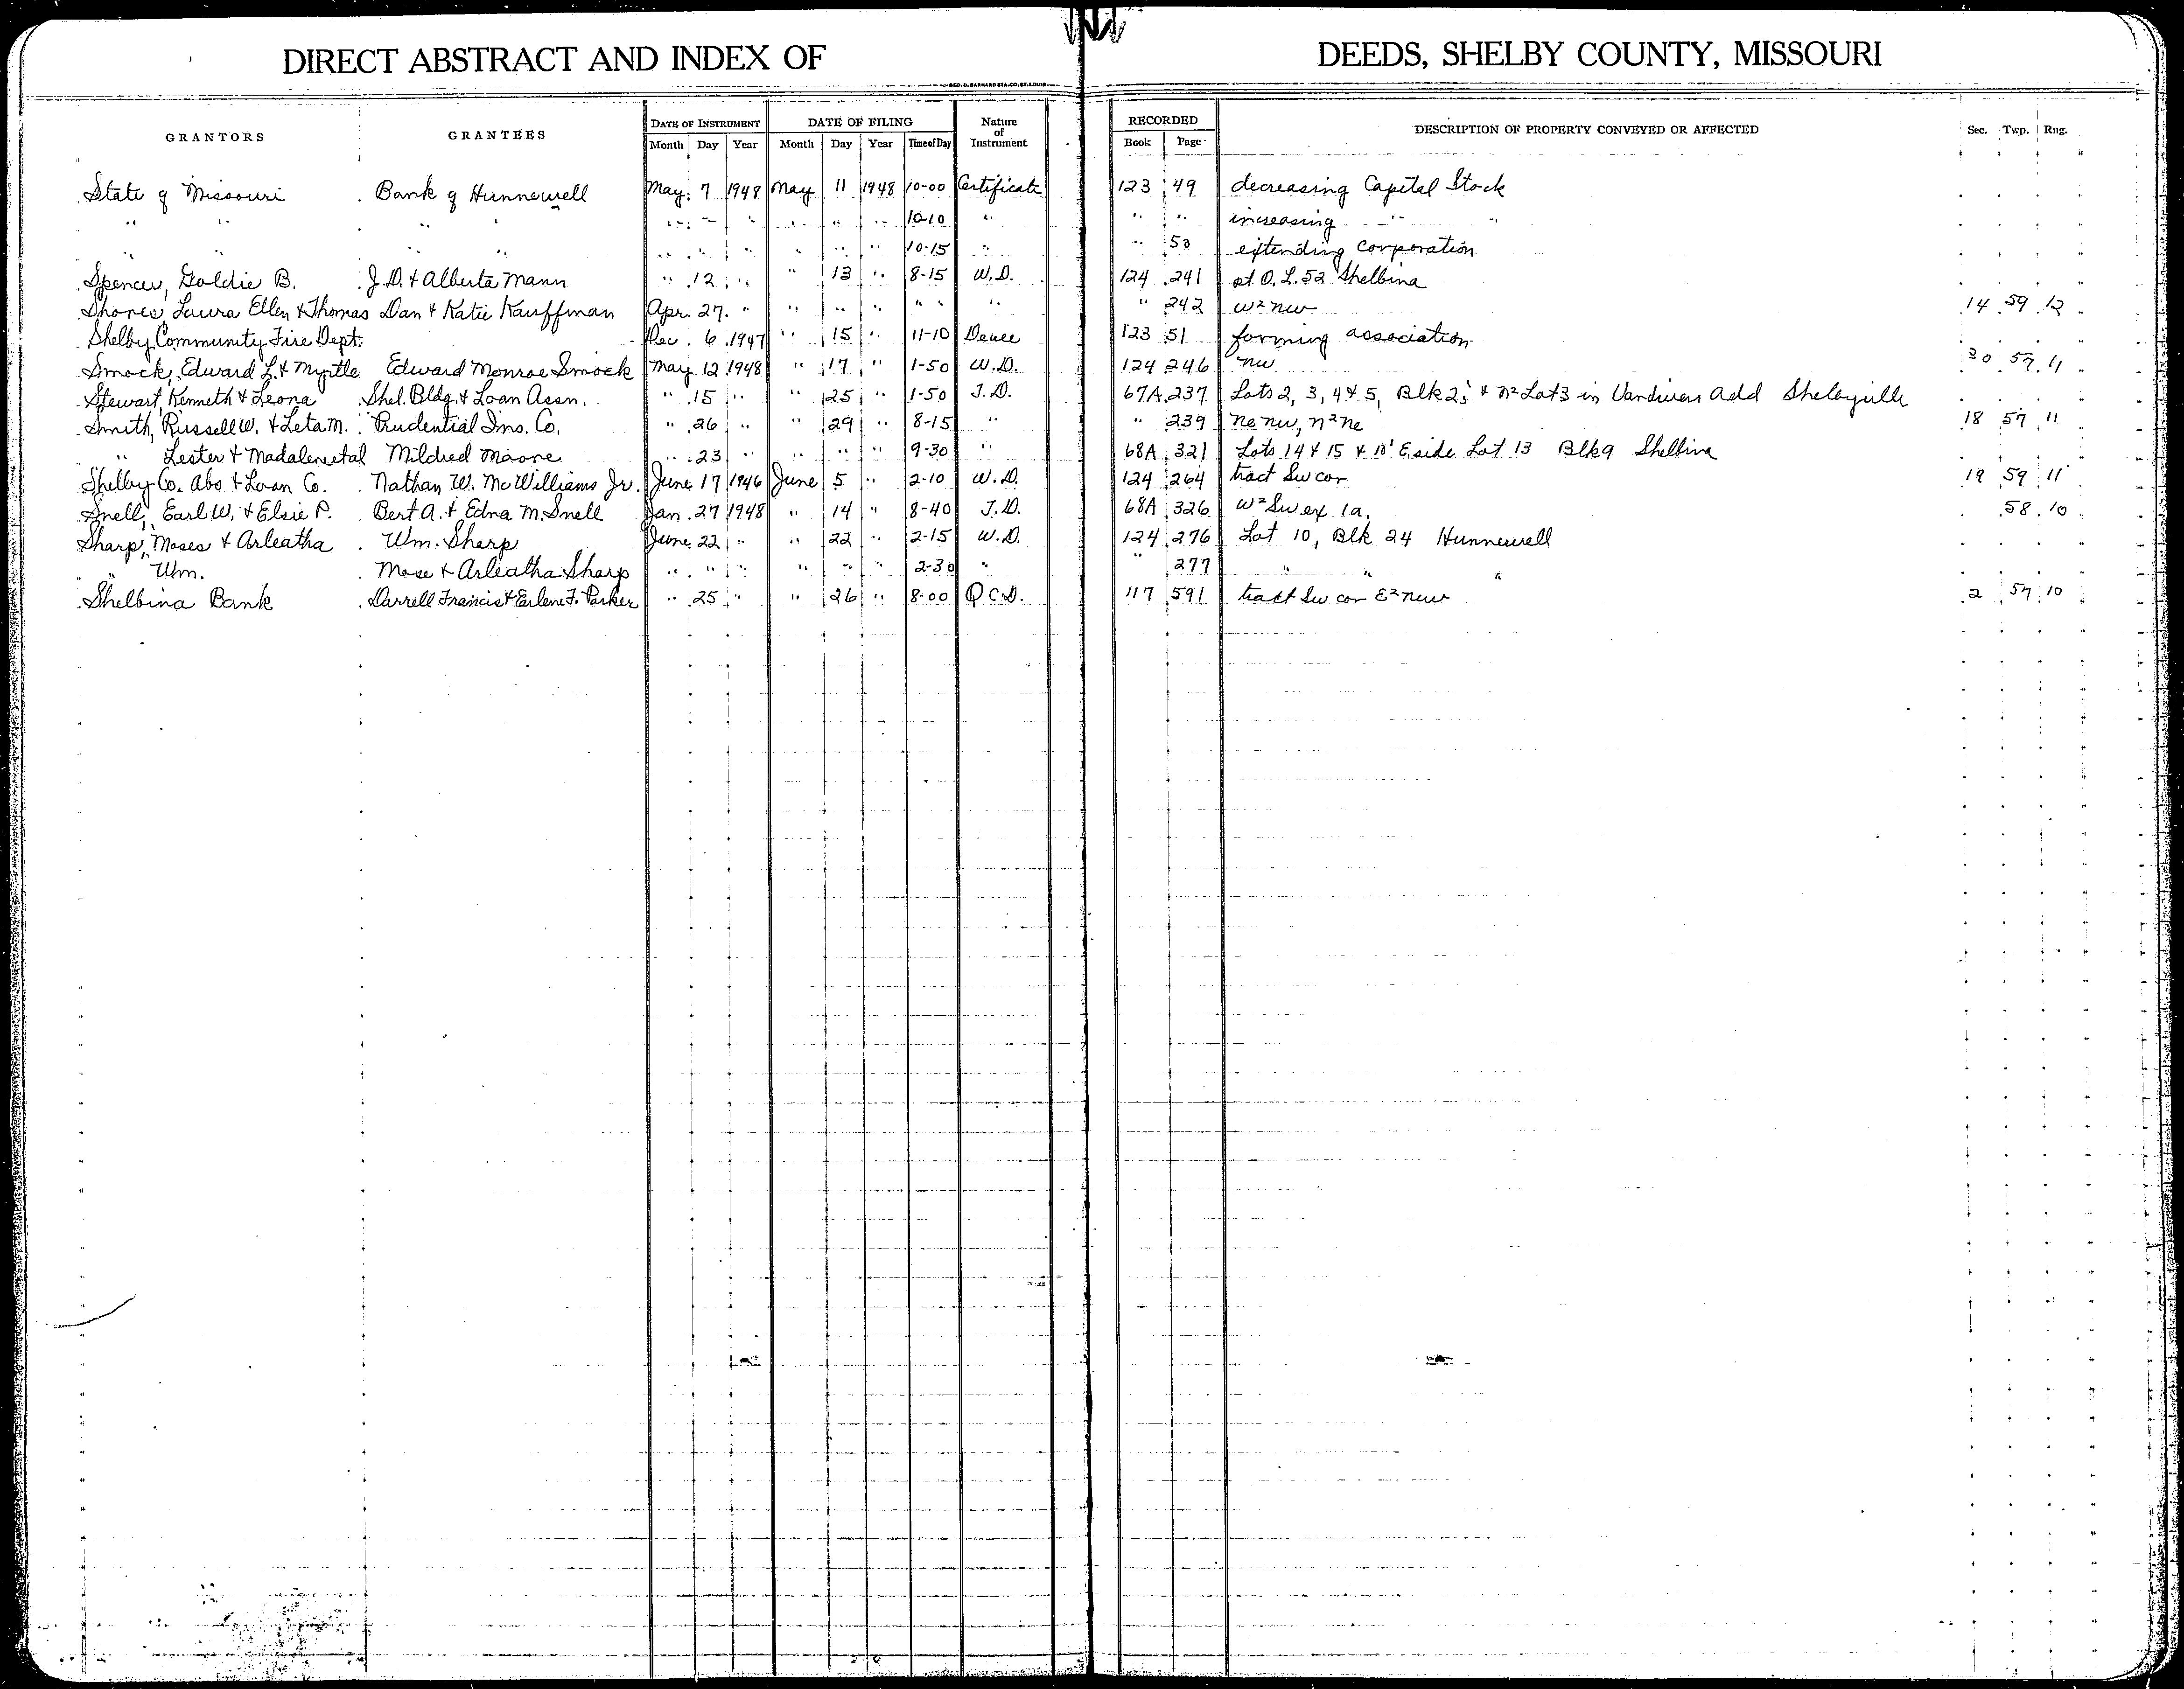 DIRECT ABSTRACT AND INDEX OF DEEDS, SHELBY COUNTY, MISSOURI
GEO. D. BARNARD STA. CO. ST. LOUIS
GRANTORS GRANTEES DATE OF INSTRUMENT DATE OF FILING Nature of Instrument RECORDED DESCRIPTION OF PROPERTY CONVEYED OR AFFECTED Sec. Twp. Rng.
Month Day Year Month Day Year Time of Day Book Page
State of Missouri Bank of Hunnewell May 7 1948 May 11 1948 10-00 Certificate 123 49 decreasing Capital Stock
" " " " " " " " " " 10-10 " " " increasing " "
" " " " " " " " " " 10-15 " " 50 extending corporation
Spencer, Goldie B. J. D. & Alberta Mann " 12 " " 13 " 8-15 W.D. 124 241 pt O.L. 52 Shelbina
Shores, Laura Ellen & Thomas Dan & Katie Kauffman Apr 27 " " " " " " " " 242 W² nw 14 59 12
Shelby Community Fire Dept. Dec 6 1947 " 15 " 11-10 123 51 forming association
Smock, Edward L. & Myrtle Edward Monroe Smock May 12 1948 " 17 " 1-50 W.D. 124 246 nw 30 57 11
Stewart, Kenneth & Leona Shel. Bldg. & Loan Assn. " 15 " " 25 " 1-50 T.D. 67A 237 Lots 2, 3, 4 & 5, Blk 2; & N² Lot 3 in Vandivers Add Shelbyville
Smith, Russell W. & Leta M. Prudential Ins. Co. " 26 " " 29 " 8-15 " " 239 ne nw, n² ne 18 57 11
" Lester & Madalen etal Mildred Moore " 23 " " " " 9-30 " 68A 321 Lots 14 & 15 & 10' E side Lot 13 Blk 9 Shelbina
Shelby Co. Abs. & Loan Co. Nathan W. McWilliams Jr. June 17 1946 June 5 " 2-10 W.D. 124 264 tract Sw cor 19 59 11
Snell, Earl W. & Elsie P. Bert A. & Edna M. Snell Jan. 27 1948 " 14 " 8-40 T.D. 68A 326 W² Sw ex 1a. 58 10
Sharp, Moses & Arleatha Wm. Sharp June 22 " " 22 " 2-15 W.D. 124 276 Lot 10, Blk 24 Hunnewell
" Wm. Mose & Arleatha Sharp " " " " " " 2-30 " " 277 " " "
Shelbina Bank Darrell Francis & Earlene F. Parker " 25 " " 26 " 8-00 Q C D. 117 591 tract Sw cor E² new 2 57 10